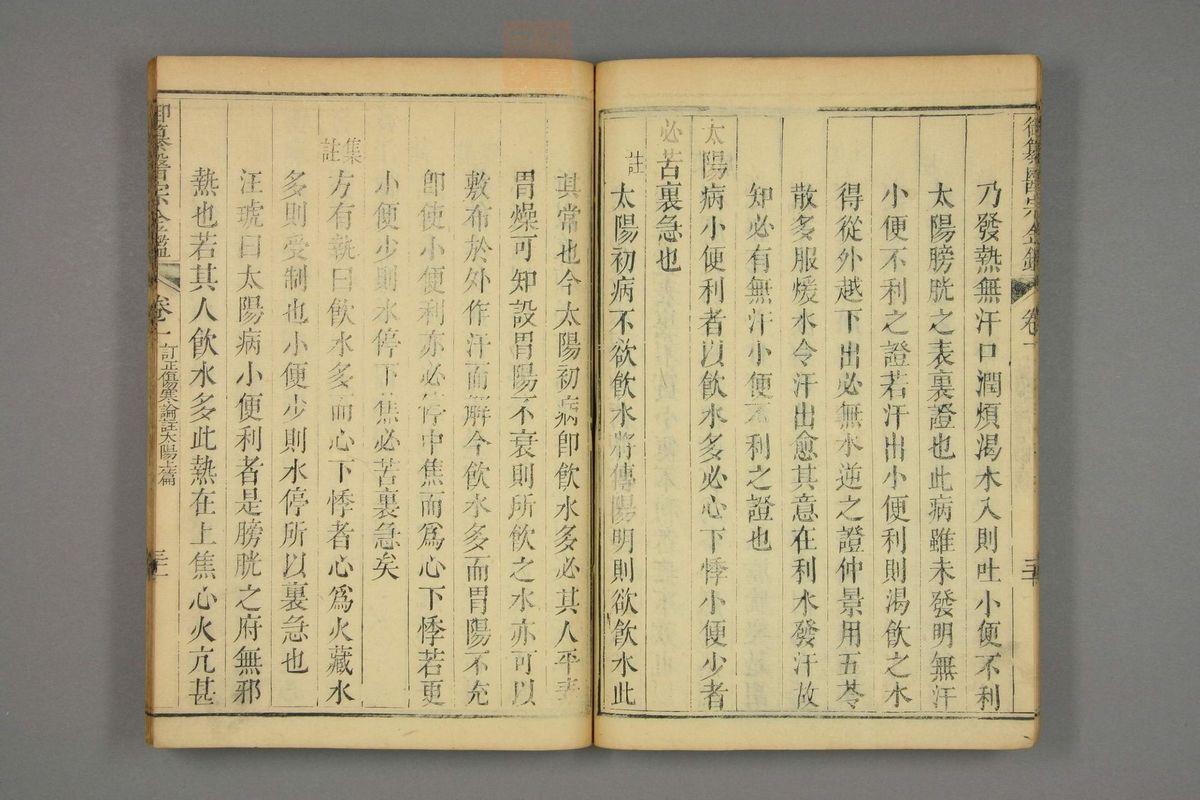 御纂醫宗金鑑 卷一
乃發熱無汗口潤煩渴水入則吐小便不利
太陽膀胱之表裏證也此病雖未發明無汗
小便不利之證若汗出小便利則渴飲之水
得從外越下出必無水逆之證仲景用五苓
散多服煖水令汗出愈其意在利水發汗故
知必有無汗小便不利之證也
太陽病小便利者以飲水多必心下悸小便少者
必苦裏急也
註
太陽初病不欲飲水將傳陽明則欲飲水此
其常也今太陽初病卽飲水多必其人平素
胃燥可知設胃陽不衰則所飲之水亦可以
敷布於外作汗而解今飲水多而胃陽不充
卽使小便利亦必停中焦而爲心下悸若更
小便少則水停下焦必苦裏急矣
集註
方有執曰飲水多而心下悸者心爲火藏水
多則受制也小便少則水停所以裏急也
汪琥曰太陽病小便利者是膀胱之府無邪
熱也若其人飲水多此熱在上焦心火亢甚
御纂醫宗金鑑 卷一 訂正傷寒論註太陽上篇